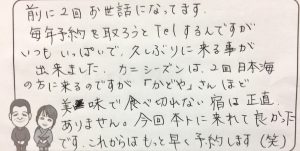 前に2回お世話になってます.
毎年予約を取ろうとTelするんですが
いつもいっぱいで、久しぶりに来る事が
出来ました. カニシーズンは、2回日本海
の方に来るのですが「かどや」さんほど
美味で食べ切れない宿は正直
ありません。今回本トに来れて良かった
です。これからはもっと早く予約します(笑)